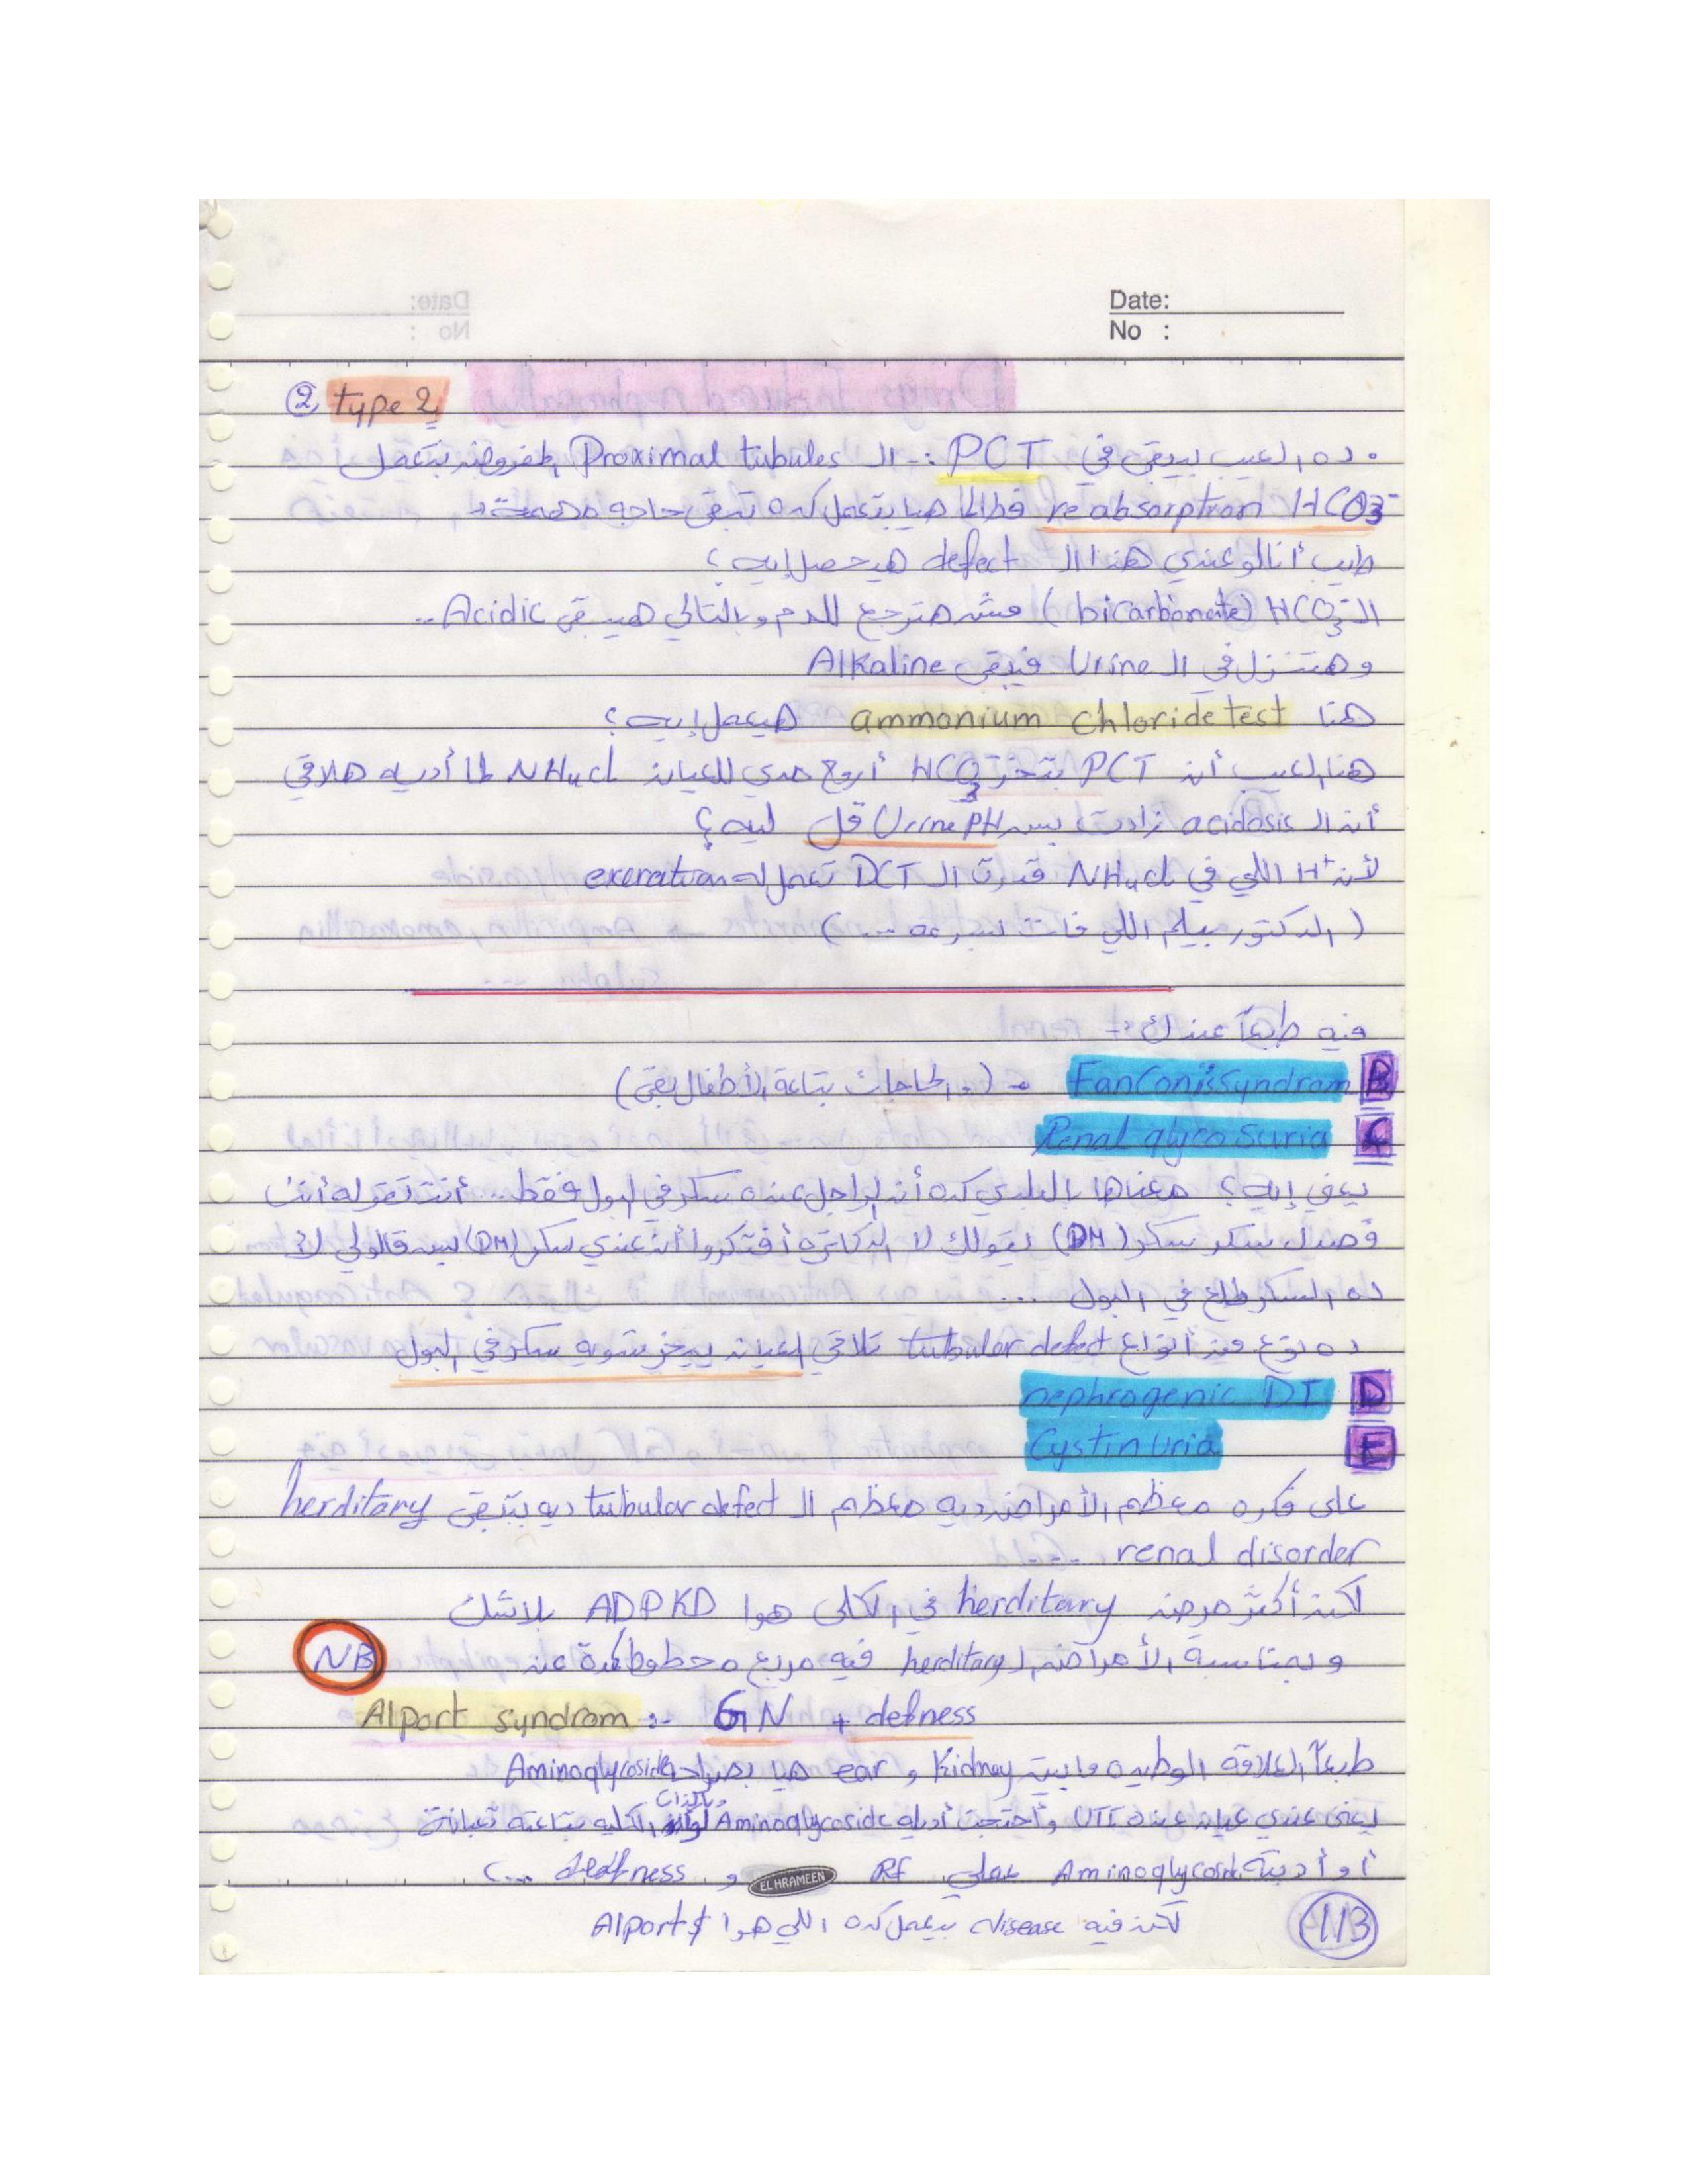 Date:
No :
② type 2
. ده العيب بيبقى في PCT :- الـ Proximal tubules المفروض بتعمل
reabsorption HCO3- فطالما هيا بتعمل كده تبقى حاجه مهمة
طيب أنا لو عندي هنا الـ defect هيحصل إيه ؟
الـ HCO3- (bicarbonate) مش هترجع للدم وبالتالي هيبقى Acidic ..
وهتنزل في الـ Urine فيبقى Alkaline
هنا ammonium chloride test هيعمل إيه ؟
هنا العيب أن PCT HCO3- أروح مدي للعيان NH4cl لما أديه هلاقي
أن الـ acidosis زادت بس Urine PH قل ليه ؟
لأن H+ اللي في NH4cl قدرت الـ DCT تعمل له exeration
( الدكتور بيلم اللي فات بسرعه ... )
فيه طبعاً عندك :-
B FanConi's Syndrom - ( الحاجات بتاعة الأطفال بقى )
C Renal glycosuria
يعني إيه ؟ معناها بالبلدي كده أن الراجل عنده سكر في البول فقط ... أنت تقوله أنت
قصدك سكر سكر (DM) يقولك لا الدكاتره أفتكروا أن عندي سكر (DM) بس قالولي لأ
ده السكر طالع في البول ....
ده نوع من أنواع tubular defect تلاقي العيان بيخر شويه سكر في البول
D nephrogenic DI
E Cystinuria
على فكره معظم الأمراض ديه معظم الـ tubular defect ديه بتبقى herditary
renal disorder ....
لكن أكتر مرض herditary في الكلى هوا ADPKD بلا شك
وبمناسبة الأمراض الـ herditary فيه مربع محطوط كدة عن NB
Alport syndrom :- GN + defness
طبعاً العلاقه الوطيده مابين Kidney و ear هيا بصراحه Aminoglycoside
يعني عندي عيان عنده UTI وأحتجت أديله Aminoglycoside وبالذات لو الكليه بتاعته تعبانة
أو أديته Aminoglycosid عملي RF و deafness ... )
EL HRAMEEN
لكن فيه disease بيعمل كده اللي هوا Alport
113